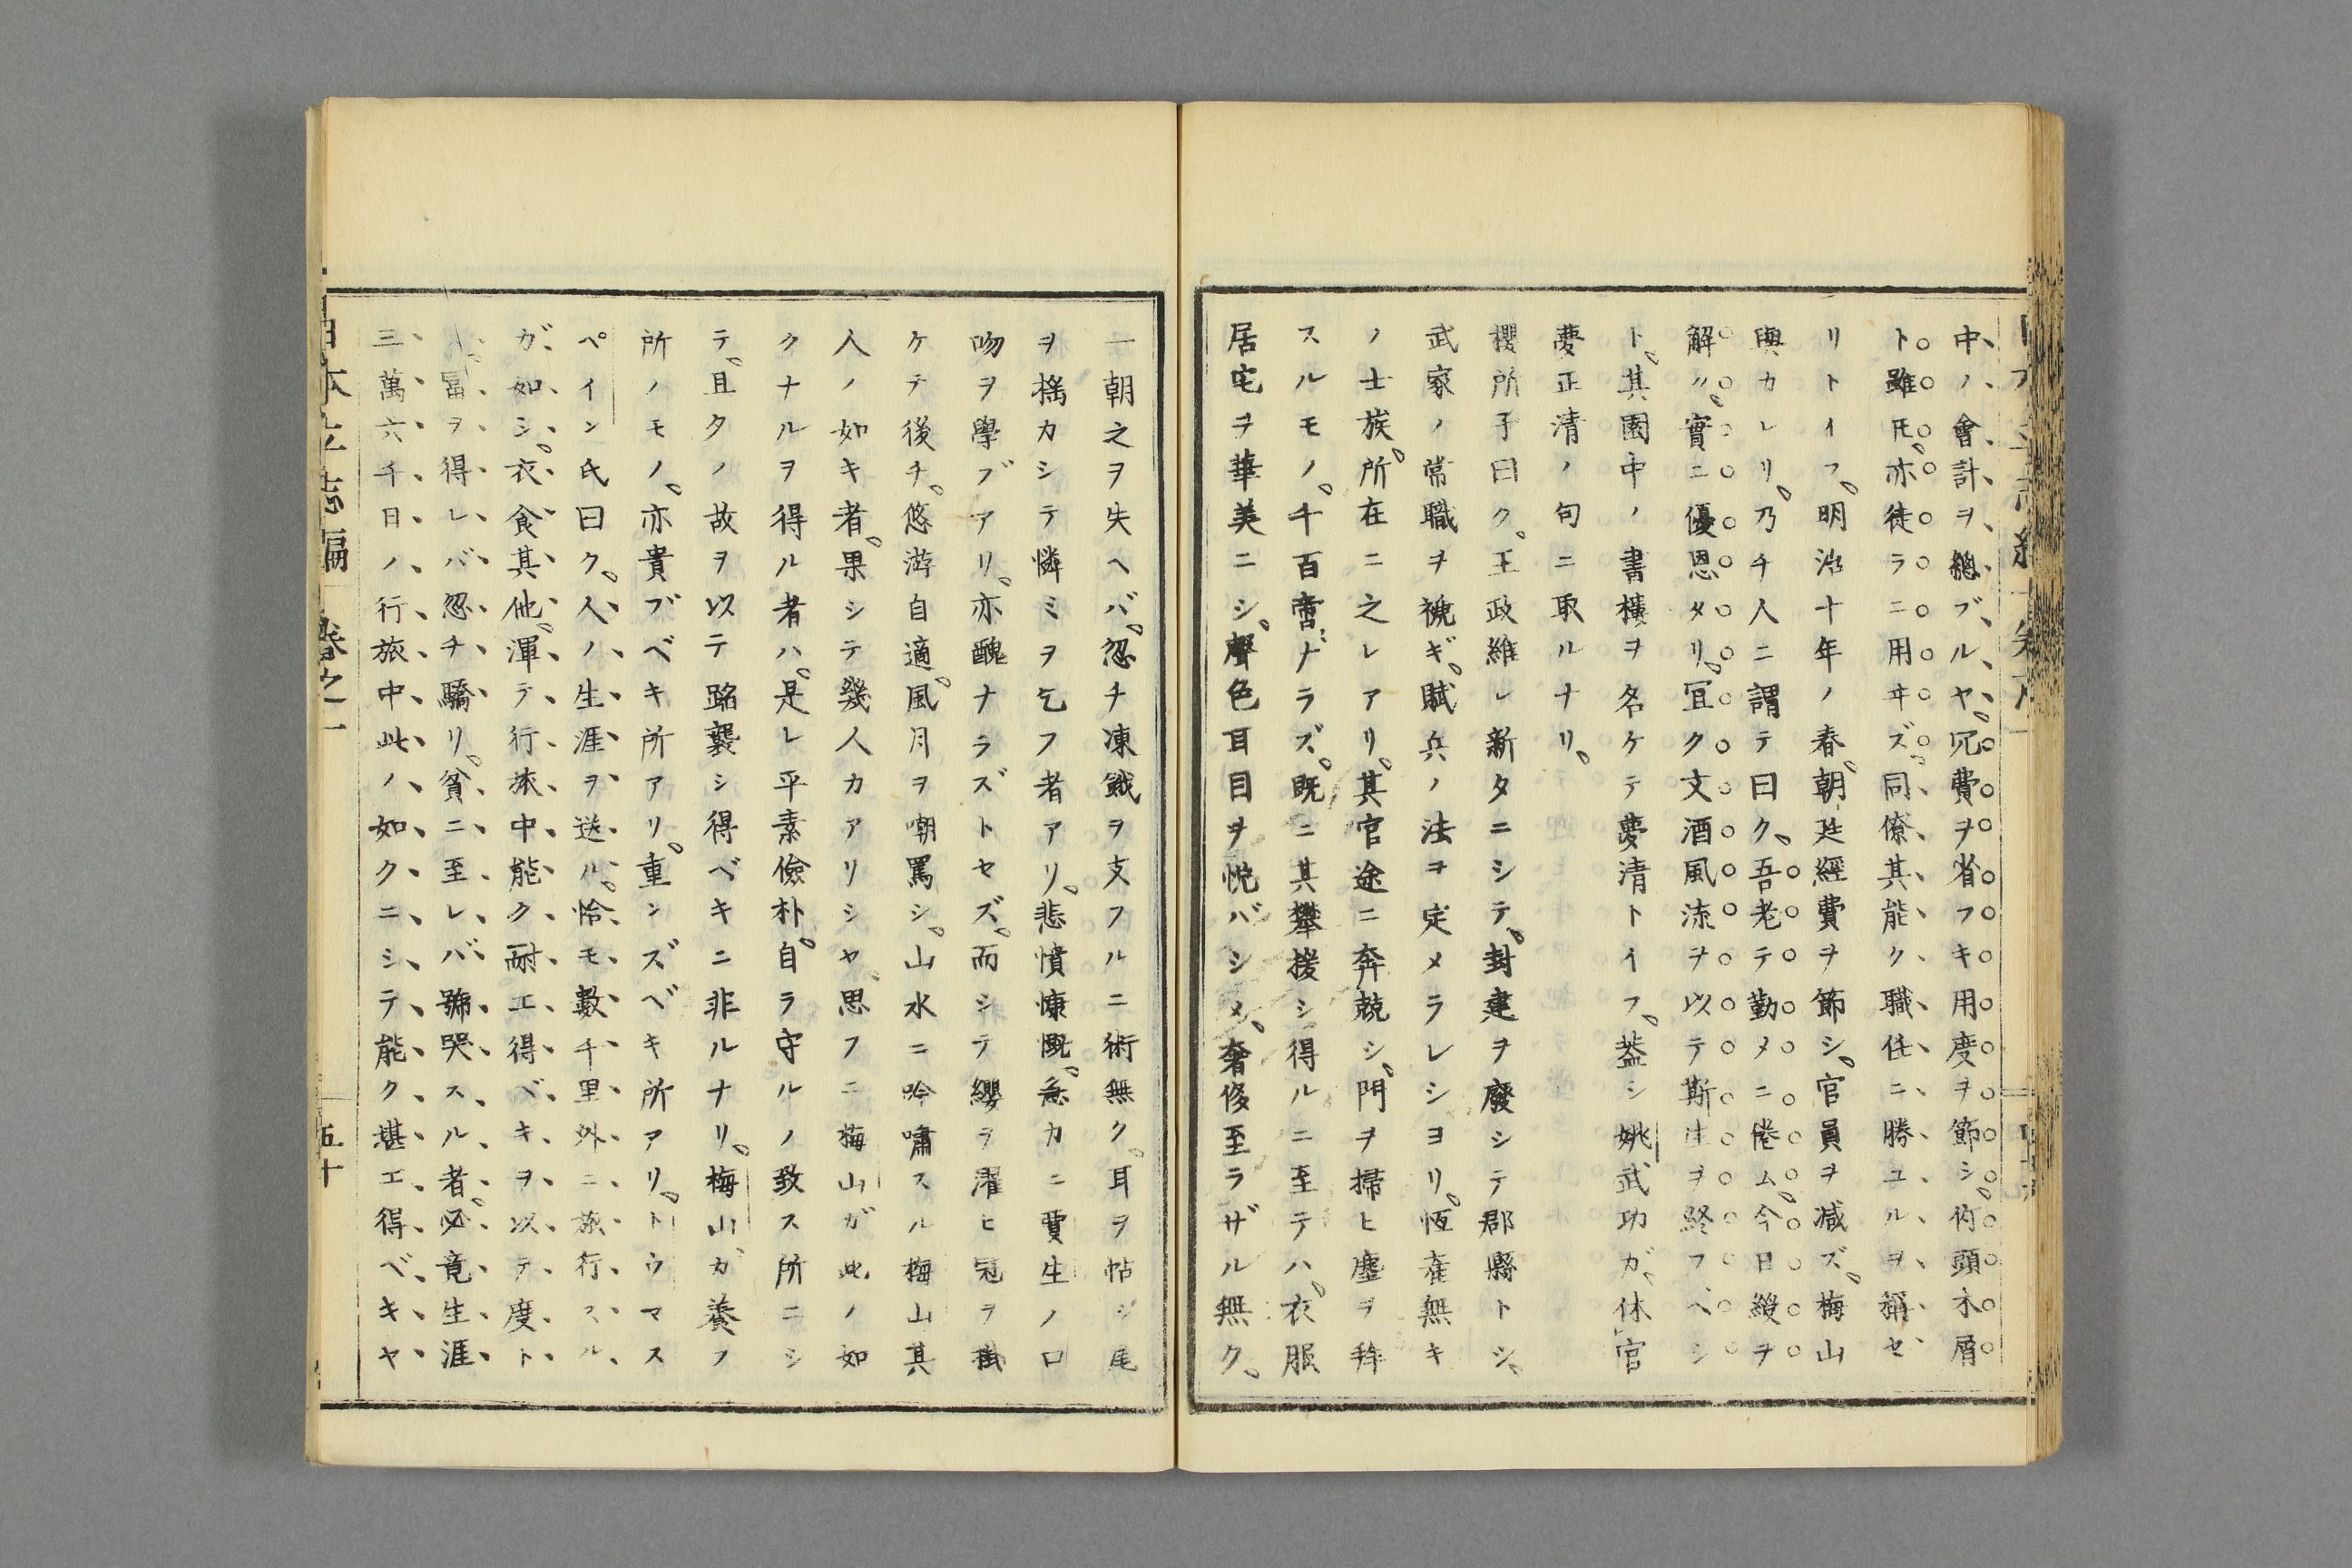 中ノ會計ヲ總ブルヤ。冗費ヲ省フキ用度ヲ節シ。竹頭木屑
ト雖𪜈。亦徒ラニ用ヰズ。同僚其能ク職任ニ勝ユルヲ稱セ
リトイフ。明治十年ノ春。朝廷經費ヲ節シ。官員ヲ減ズ。梅山
與カレリ。乃チ人ニ謂テ曰ク。吾老テ勤メニ倦ム。今日綬ヲ
解ク。實ニ優恩タリ。宜ク文酒風流ヲ以テ斯生ヲ終フベシ
ト。其園中ノ書樓ヲ名ケテ夢清トイフ。蓋シ姚武功ガ。休官
夢正清ノ句ニ取ルナリ。
櫻所子曰ク。王政維レ新タニシテ。封建ヲ廢シテ郡縣トシ。
武家ノ常職ヲ褫ギ。賦兵ノ法ヲ定メラレシヨリ。恆產無キ
ノ士族。所在ニ之レアリ。其官途ニ奔競シ。門ヲ掃ヒ塵ヲ拜
スルモノ。千百啻ナラズ。既ニ其攀援シ得ルニ至テハ。衣服
居宅ヲ華美ニシ。聲色耳目ヲ悅バシメ。奢侈至ラザル無ク。
一朝之ヲ失ヘバ。忽チ凍餓ヲ支フルニ術無ク。耳ヲ帖シ尾
ヲ搖カシテ憐ミヲ乞フ者アリ。悲憤慷慨。急カニ賈生ノ口
吻ヲ學ブアリ。亦醜ナラズトセズ。而シテ纓ヲ濯ヒ冠ヲ掛
ケテ後チ。悠游自適。風月ヲ嘲罵シ。山水ニ吟嘯スル梅山其
人ノ如キ者。果シテ幾人カアリシヤ。思フニ梅山ガ此ノ如
クナルヲ得ル者ハ。是レ平素儉朴。自ラ守ルノ致ス所ニシ
テ。且タノ故ヲ以テ踏襲シ得ベキニ非ルナリ。梅山カ養フ
所ノモノ。亦貴ブベキ所アリ。重ンズベキ所アリ。トウマス
ペイン氏曰ク。人ノ生涯ヲ送ル。恰モ數千里外ニ旅行スル
ガ如シ。衣食其他。渾テ行旅中能ク耐エ得ベキヲ以テ度ト
富ヲ得レバ忽チ驕リ。貧ニ至レバ號哭スル者。必竟生涯
三萬六千日ノ行旅中此ノ如クニシテ能ク堪エ得ベキヤ
日本立志編 卷之一 五十